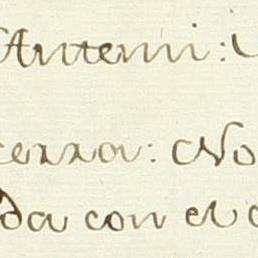 Antemi:
cerra: No
da con el